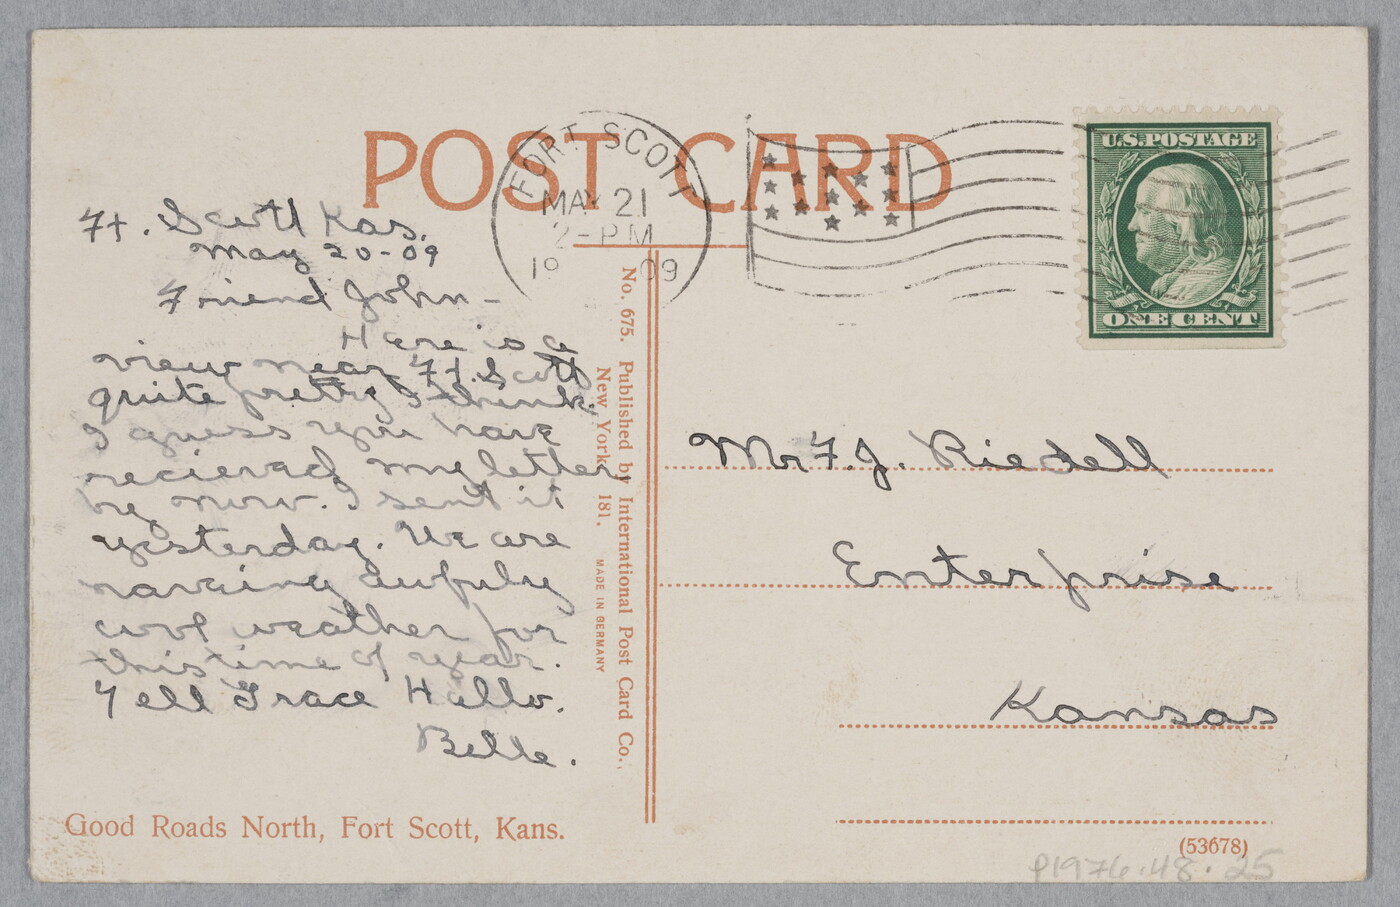 POST CARD
FORT SCOTT
MAY 21
2-PM
1909
U.S. POSTAGE
ONE CENT
Ft. Scott Kas.
May 20-09
Friend John-
Here is a
view near Ft. Scott
quite pretty I think.
I guess you have
recieved my letter
by now. I sent it
yesterday. We are
having awfuly
cool weather for
this time of year.
Tell Grace Hello.
Belle.
Good Roads North, Fort Scott, Kans.
No. 675. Published by International Post Card Co.,
New York 181. MADE IN GERMANY
Mr F. J. Riedell
Enterprise
Kansas
(53678)
P1976.48.25